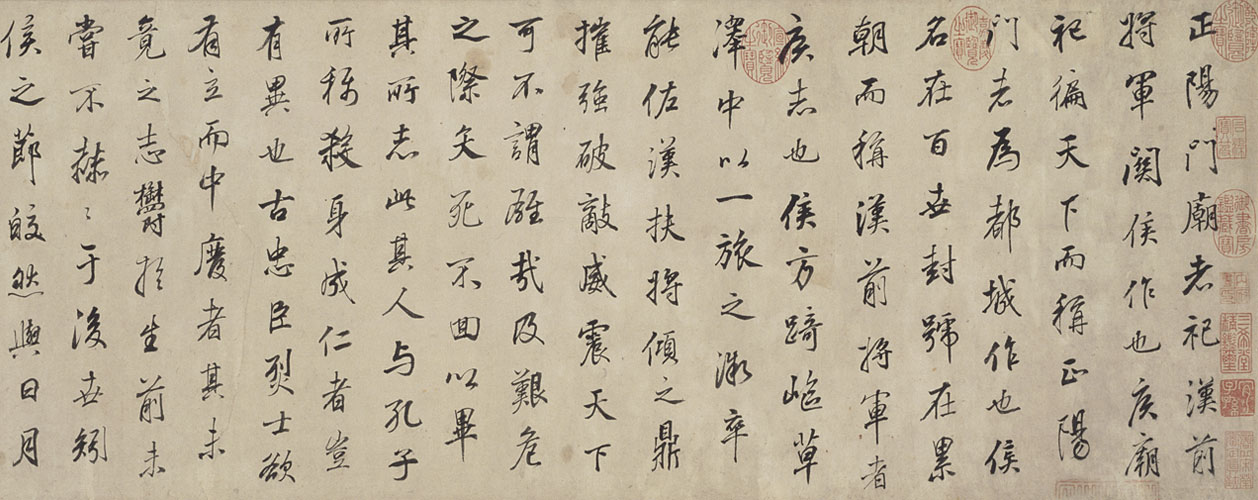 正陽門廟者祀漢前
將軍關侯作也侯廟
祀徧天下而稱正陽
門者為都城作也侯
名在百世封號在累
朝而稱漢前將軍者
侯志也侯方踦嶇草
澤中以一旅之微卒
能佐漢扶將傾之鼎
摧強破敵威震天下
可不謂雄哉及艱危
之際矢死不回以畢
其所志此其人与孔子
所稱殺身成仁者豈
有異也古忠臣烈士欲
有立而中廢者其未
竟之志於生前未
嘗不赫〻于後世矧
侯之節皎然與日月